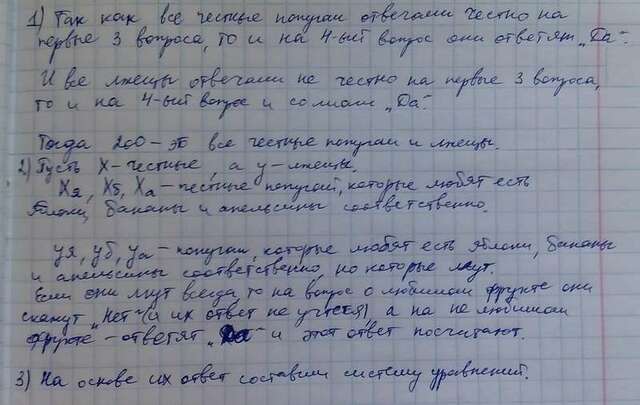 1) Так как все честные попугаи отвечали честно на
первые 3 вопроса, то и на 4-ый вопрос они ответят „Да“.
И все лжецы отвечали не честно на первые 3 вопроса,
то и на 4-ый вопрос и солгали „Да“.
Тогда 200 – это все честные попугаи и лжецы.
2) Пусть Х – честные, а у – лжецы.
Хя, Хб, Ха – честные попугаи, которые любят есть
яблоки, бананы и апельсины соответственно.
уя, уб, уа – попугаи, которые любят есть яблоки, бананы
и апельсины соответственно, но которые лгут.
Если они лгут всегда, то на вопрос о любимом фрукте они
скажут „Нет“ (и их ответ не учтся), а на не любимом
фрукте – ответят „Да“ и этот ответ посчитают.
3) На основе их ответ составим систему уравнений.